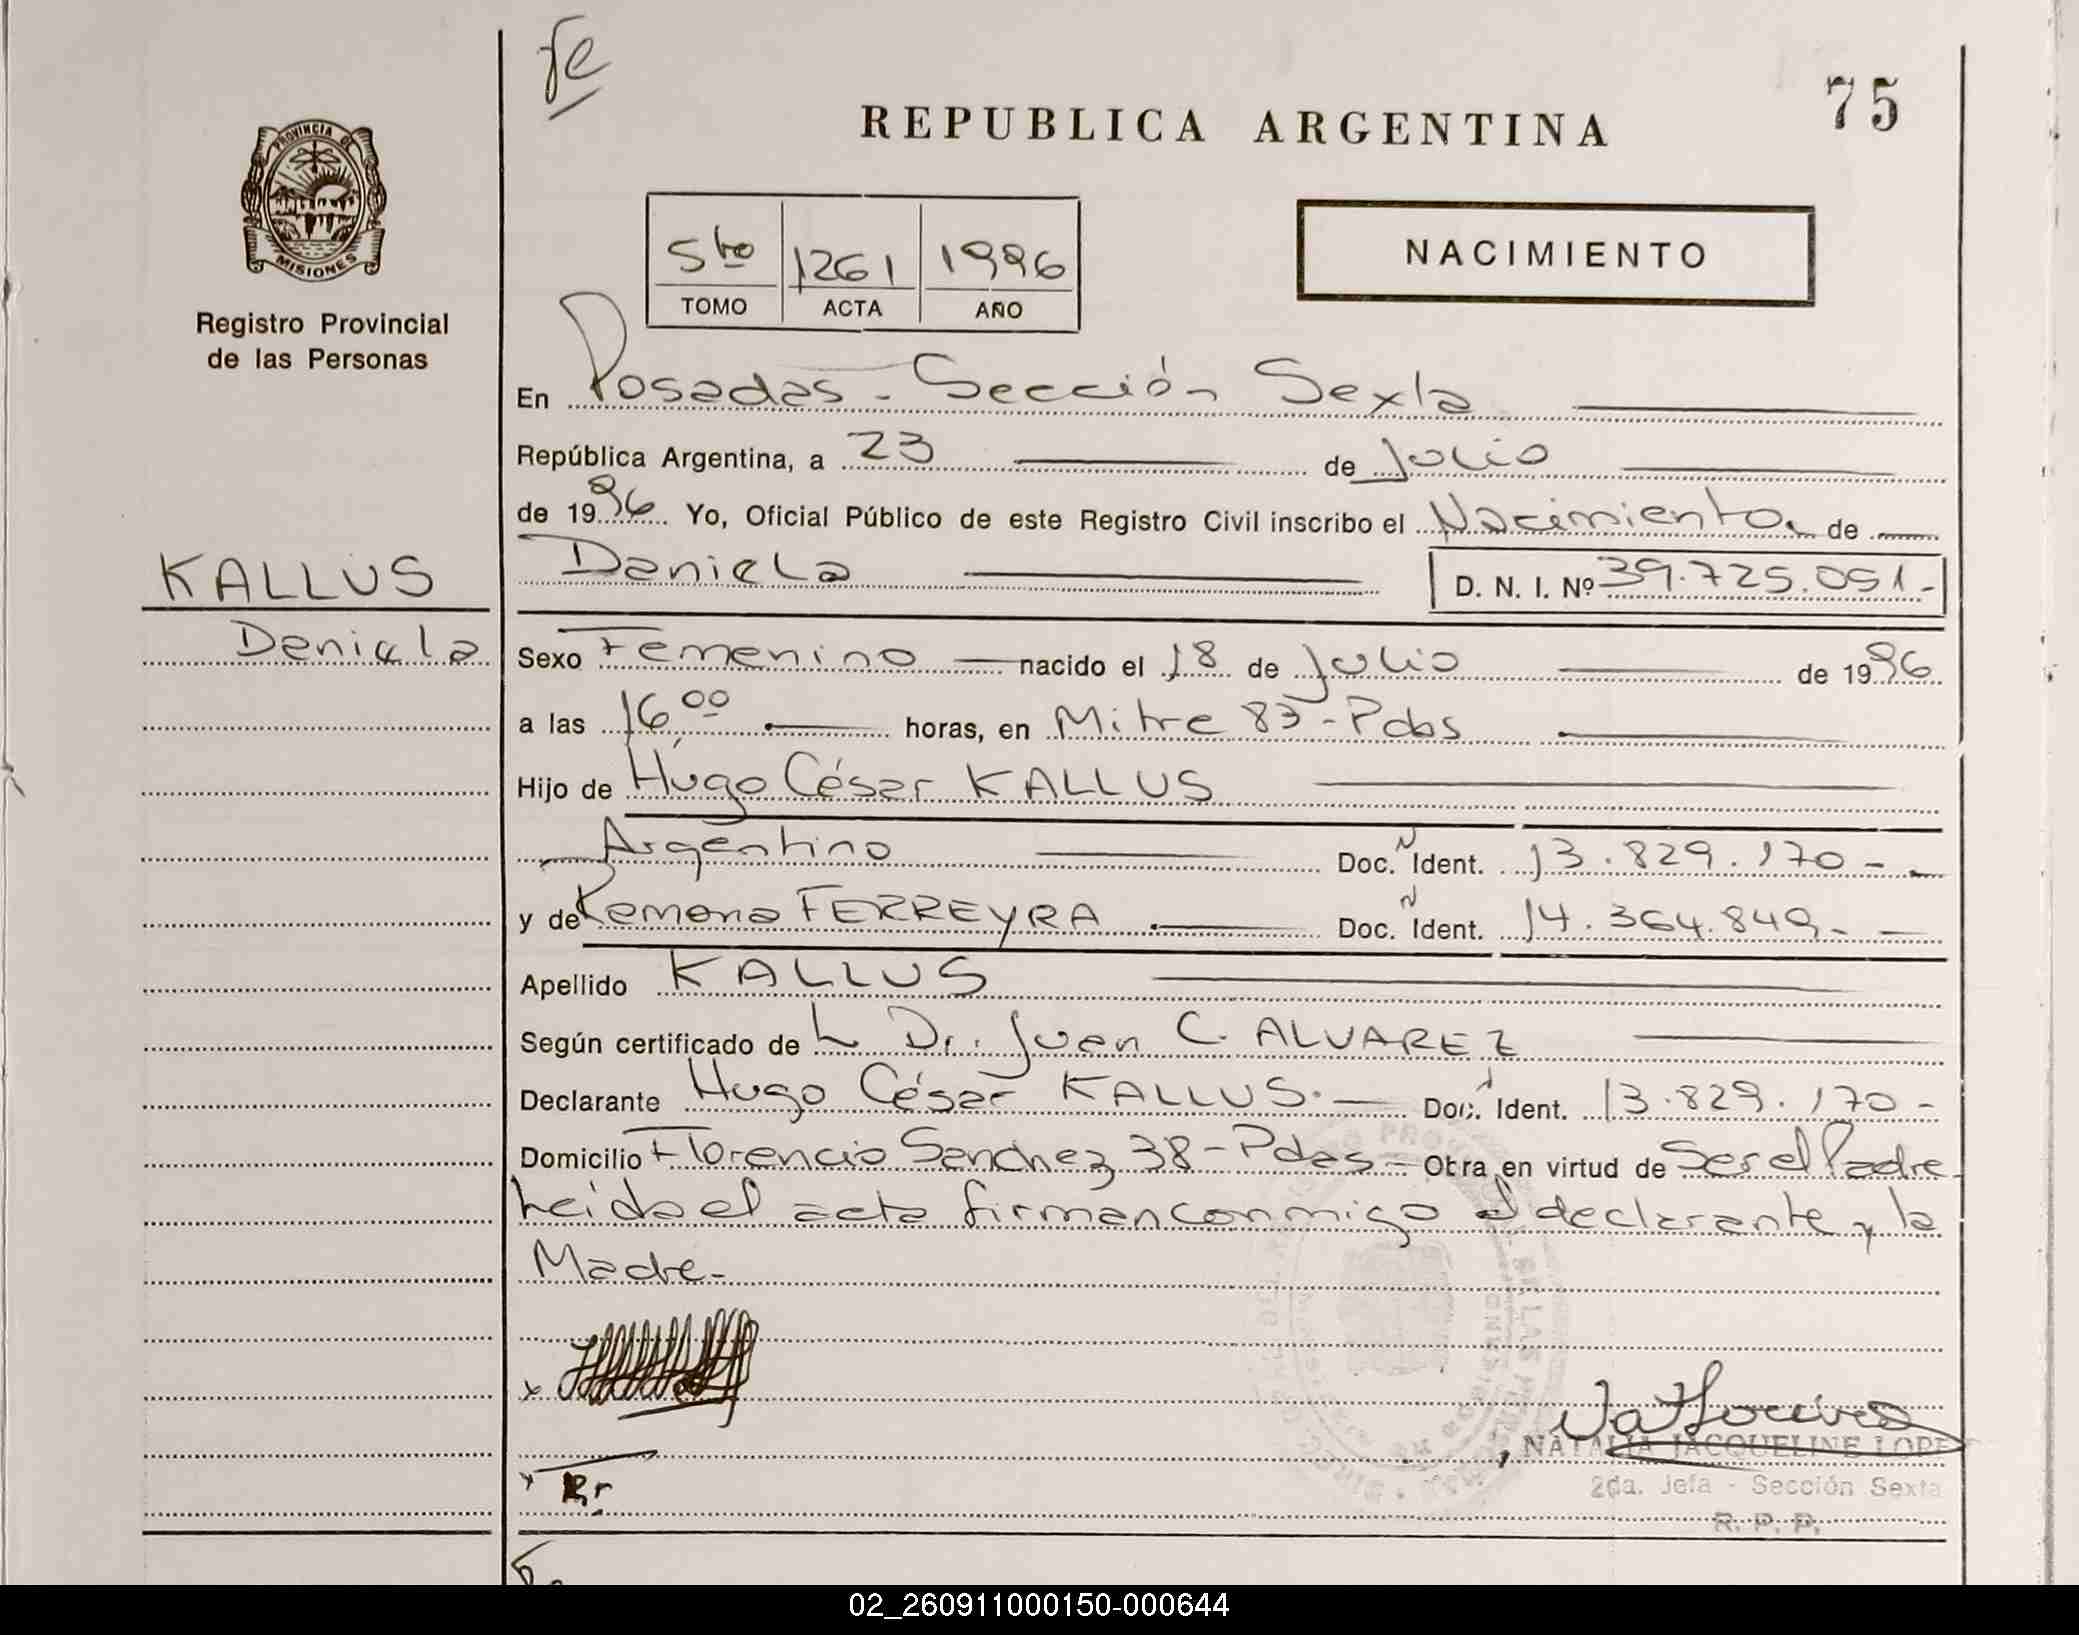 fe
75
REPUBLICA ARGENTINA
PROVINCIA DE
MISIONES
Registro Provincial
de las Personas
5to 1261 1996
TOMO ACTA AÑO
NACIMIENTO
En Posadas - Sección Sexta
República Argentina, a 23 de Julio
de 1996 Yo, Oficial Público de este Registro Civil inscribo el Nacimiento de
KALLUS
Daniela D. N. I. Nº 39.725.051-
Daniela
Sexo Femenino nacido el 18 de Julio de 1996
a las 16,00 horas, en Mitre 83 - Pdas
Hijo de Hugo César KALLUS
Argentino Doc. N Ident. 13.829.170-
y de Ramona FERREYRA Doc. N Ident. 14.364.849-
Apellido KALLUS
Según certificado de L Dr. Juan C. ALVAREZ
Declarante Hugo César KALLUS.- Doc. N Ident. 13.829.170-
Domicilio Florencio Sanchez 38 - Pdas - Obra en virtud de Ser el Padre
Leida el acta firman conmigo el declarante y la
Madre-
NATALIA JACQUELINE LOPE
2da. Jefa - Sección Sexta
R. P. P.
02_260911000150-000644